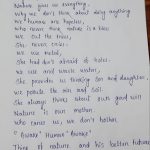 Nature gives us everything,
why we don't think about doing anything
we humans are hopeless,
who never think nature is a bless
we cut the trees,
She never cries.
we use metal,
She had don't afraid of holes.
we use and waste water,
She provides us thinking son and daughter,
we pollute the air and soil.
She always thinks about our good will
Nature is our mother.
who cares us, we don't bother.
"Awake" Human "Awake"
Think of nature and his better future